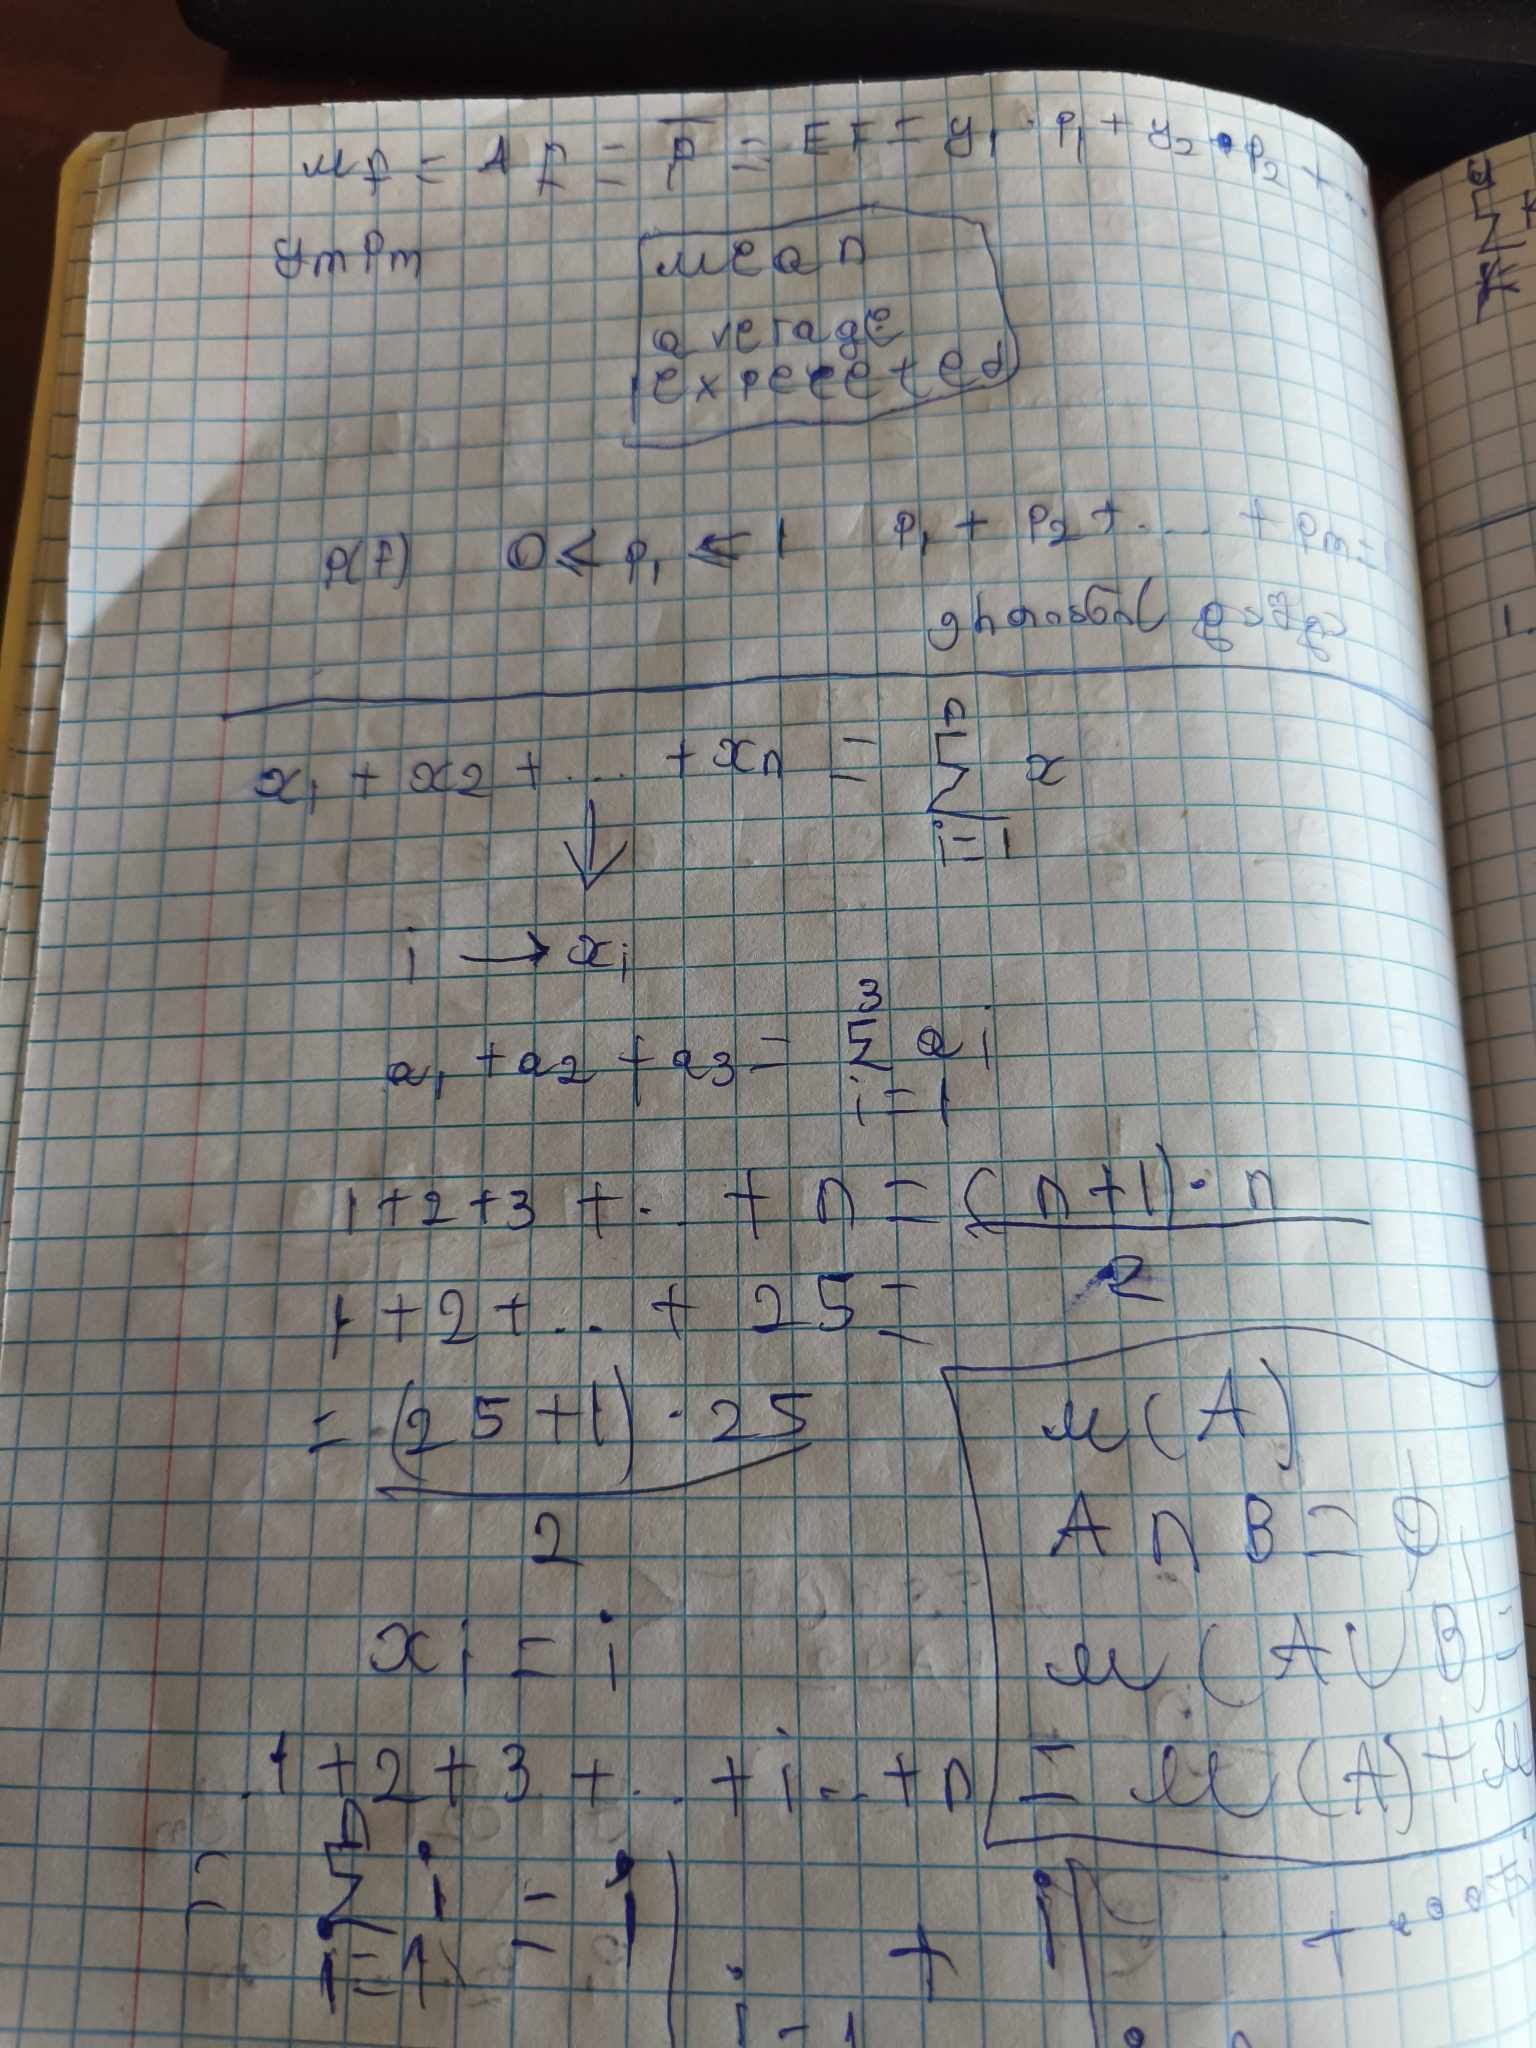 Mf = Af = f̅ = Ef = y₁ · p₁ + y₂ · p₂ + ...
yₘpₘ
mean
average
expeceted
p(f) 0 ≤ p₁ ≤ 1 p₁ + p₂ + .... + pₘ =
x₁ + x₂ + .... + xₙ = Σ x
n
i=1
↓
i → xᵢ
a₁ + a₂ + a₃ = Σ aᵢ
3
i=1
1 + 2 + 3 + ... + n = (n+1) · n
2
1 + 2 + ... + 25 =
= (25+1) · 25
2
xᵢ = i
1 + 2 + 3 + ... + i ... + n
= Σ i = i| + i| + ....
n
i=1
i=1
M(A)
A ∩ B = ∅
M(A ∪ B) =
= M(A) + M